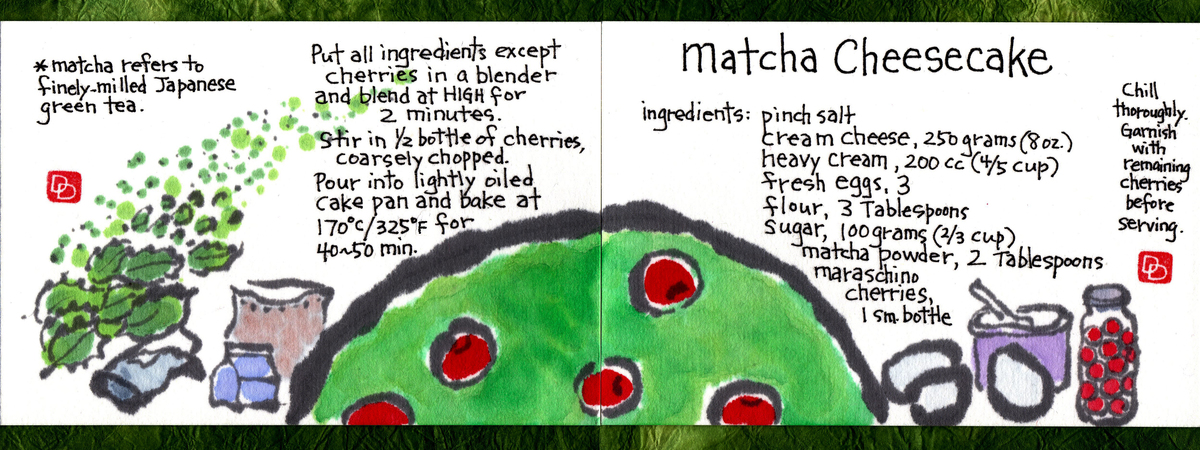 *matcha refers to
finely-milled Japanese
green tea.
Put all ingredients except
cherries in a blender
and blend at HIGH for
2 minutes.
Stir in 1/2 bottle of cherries,
coarsely chopped.
Pour into lightly oiled
cake pan and bake at
170°C/325°F for
40~50 min.
Matcha Cheesecake
ingredients: pinch salt
cream cheese, 250 grams (8 oz.)
heavy cream, 200 cc (4/5 cup)
fresh eggs, 3
flour, 3 Tablespoons
sugar, 100 grams (2/3 cup)
matcha powder, 2 Tablespoons
maraschino
cherries,
1 sm. bottle
Chill
thoroughly.
Garnish
with
remaining
cherries
before
serving.
DD
DD